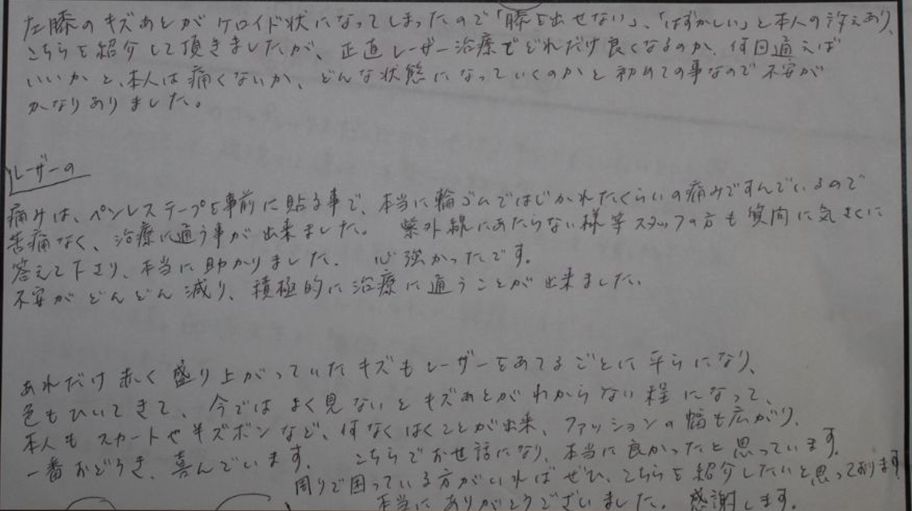 左膝のキズあとがケロイド状になってしまったので「膝を出せない」、「はずかしい」と本人の訴えあり、
こちらを紹介して頂きましたが、正直レーザー治療でどれだけ良くなるのか、何回通えば
いいかと、本人は痛くないか、どんな状態になっていくのかと初めての事なので不安が
かなりありました。
レーザーの
痛みは、ペンレステープを事前に貼る事で、本当に輪ゴムではじかれたくらいの痛みですんでいるので
苦痛なく、治療に通う事が出来ました。 紫外線にあたらない様等スタッフの方も質問に気さくに
答えて下さり、本当に助かりました。 心強かったです。
不安がどんどん減り、積極的に治療に通うことが出来ました。
あれだけ赤く盛り上がっていたキズもレーザーをあてるごとに平らになり、
色もひいてきて、今ではよく見ないとキズあとがわからない程になって、
本人もスカートや半ズボンなど、何なくはくことが出来、ファッションの幅も広がり、
一番おどろき、喜んでいます。 こちらでお世話になり、本当に良かったと思っています。
周りで困っている方がいればぜひ、こちらを紹介したいと思っております。
本当にありがとうございました。感謝します。